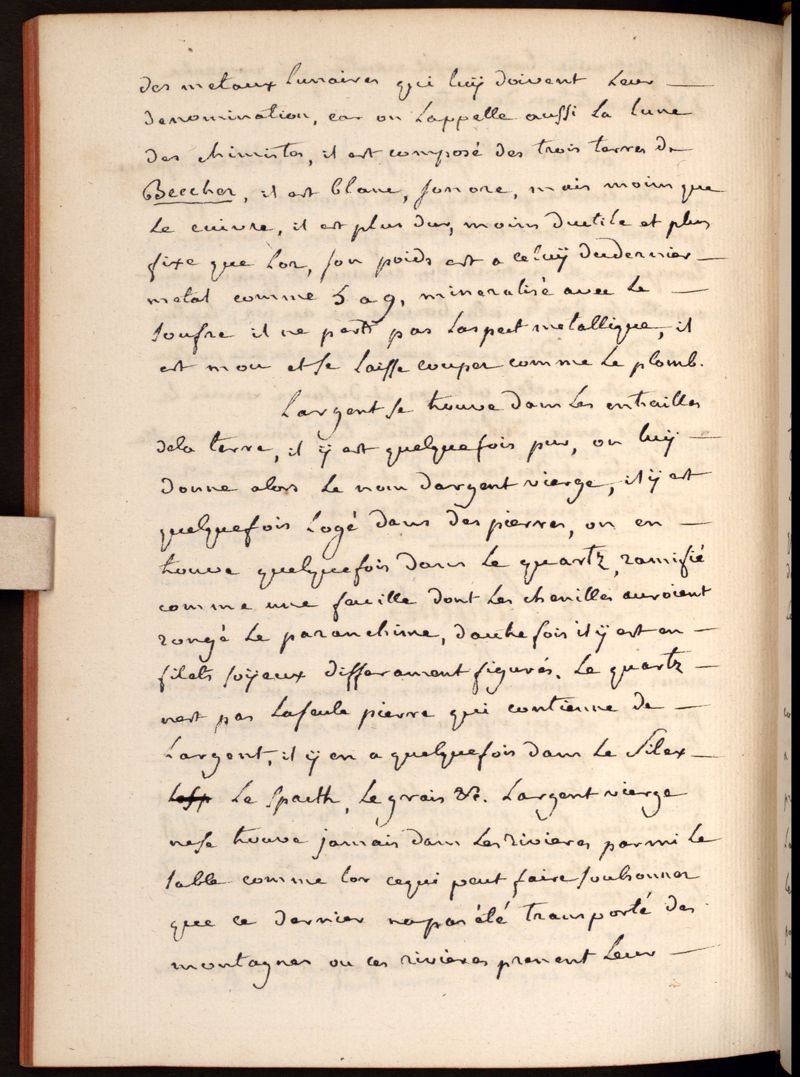 des metaux lunaires qui luÿ doivent leur —
denomination, car on lappelle aussi la lune
des chimistes, il est composé des trois terres de
Beecher, il est blanc, sonore, mais moins que
le cuivre, il est plus dur, moins ductile et plus
fixe que lor, son poids est a celuÿ dudernier —
metal comme 5 a 9, mineralisé avec le —
soufre il ne perd pas laspect metallique, il
est mou et se laisse couper comme le plomb.
Largent se trouve dans les entrailles
dela terre, il ÿ est quelquefois pur, on luÿ —
donne alors le nom dargent vierge, il ÿ est
quelquefois logé dans des pierres, on en —
trouve quelquefois dans le quartz, ramifié
comme une feuille dont les chenilles auroient
rongé le paranchime, dautre fois il ÿ est en —
filets soÿeux differament figurés. Le quartz —
nest pas laseule pierre qui contienne de —
Largent, il ÿ en a quelquefois dans le Silex —
le spath, le grais &c. Largent vierge
nese trouve jamais dans les rivieres parmi le
sable comme lor cequi peut faire soubsonner
que ce dernier napas été transporté des
montagnes ou ces rivieres prenent leur —